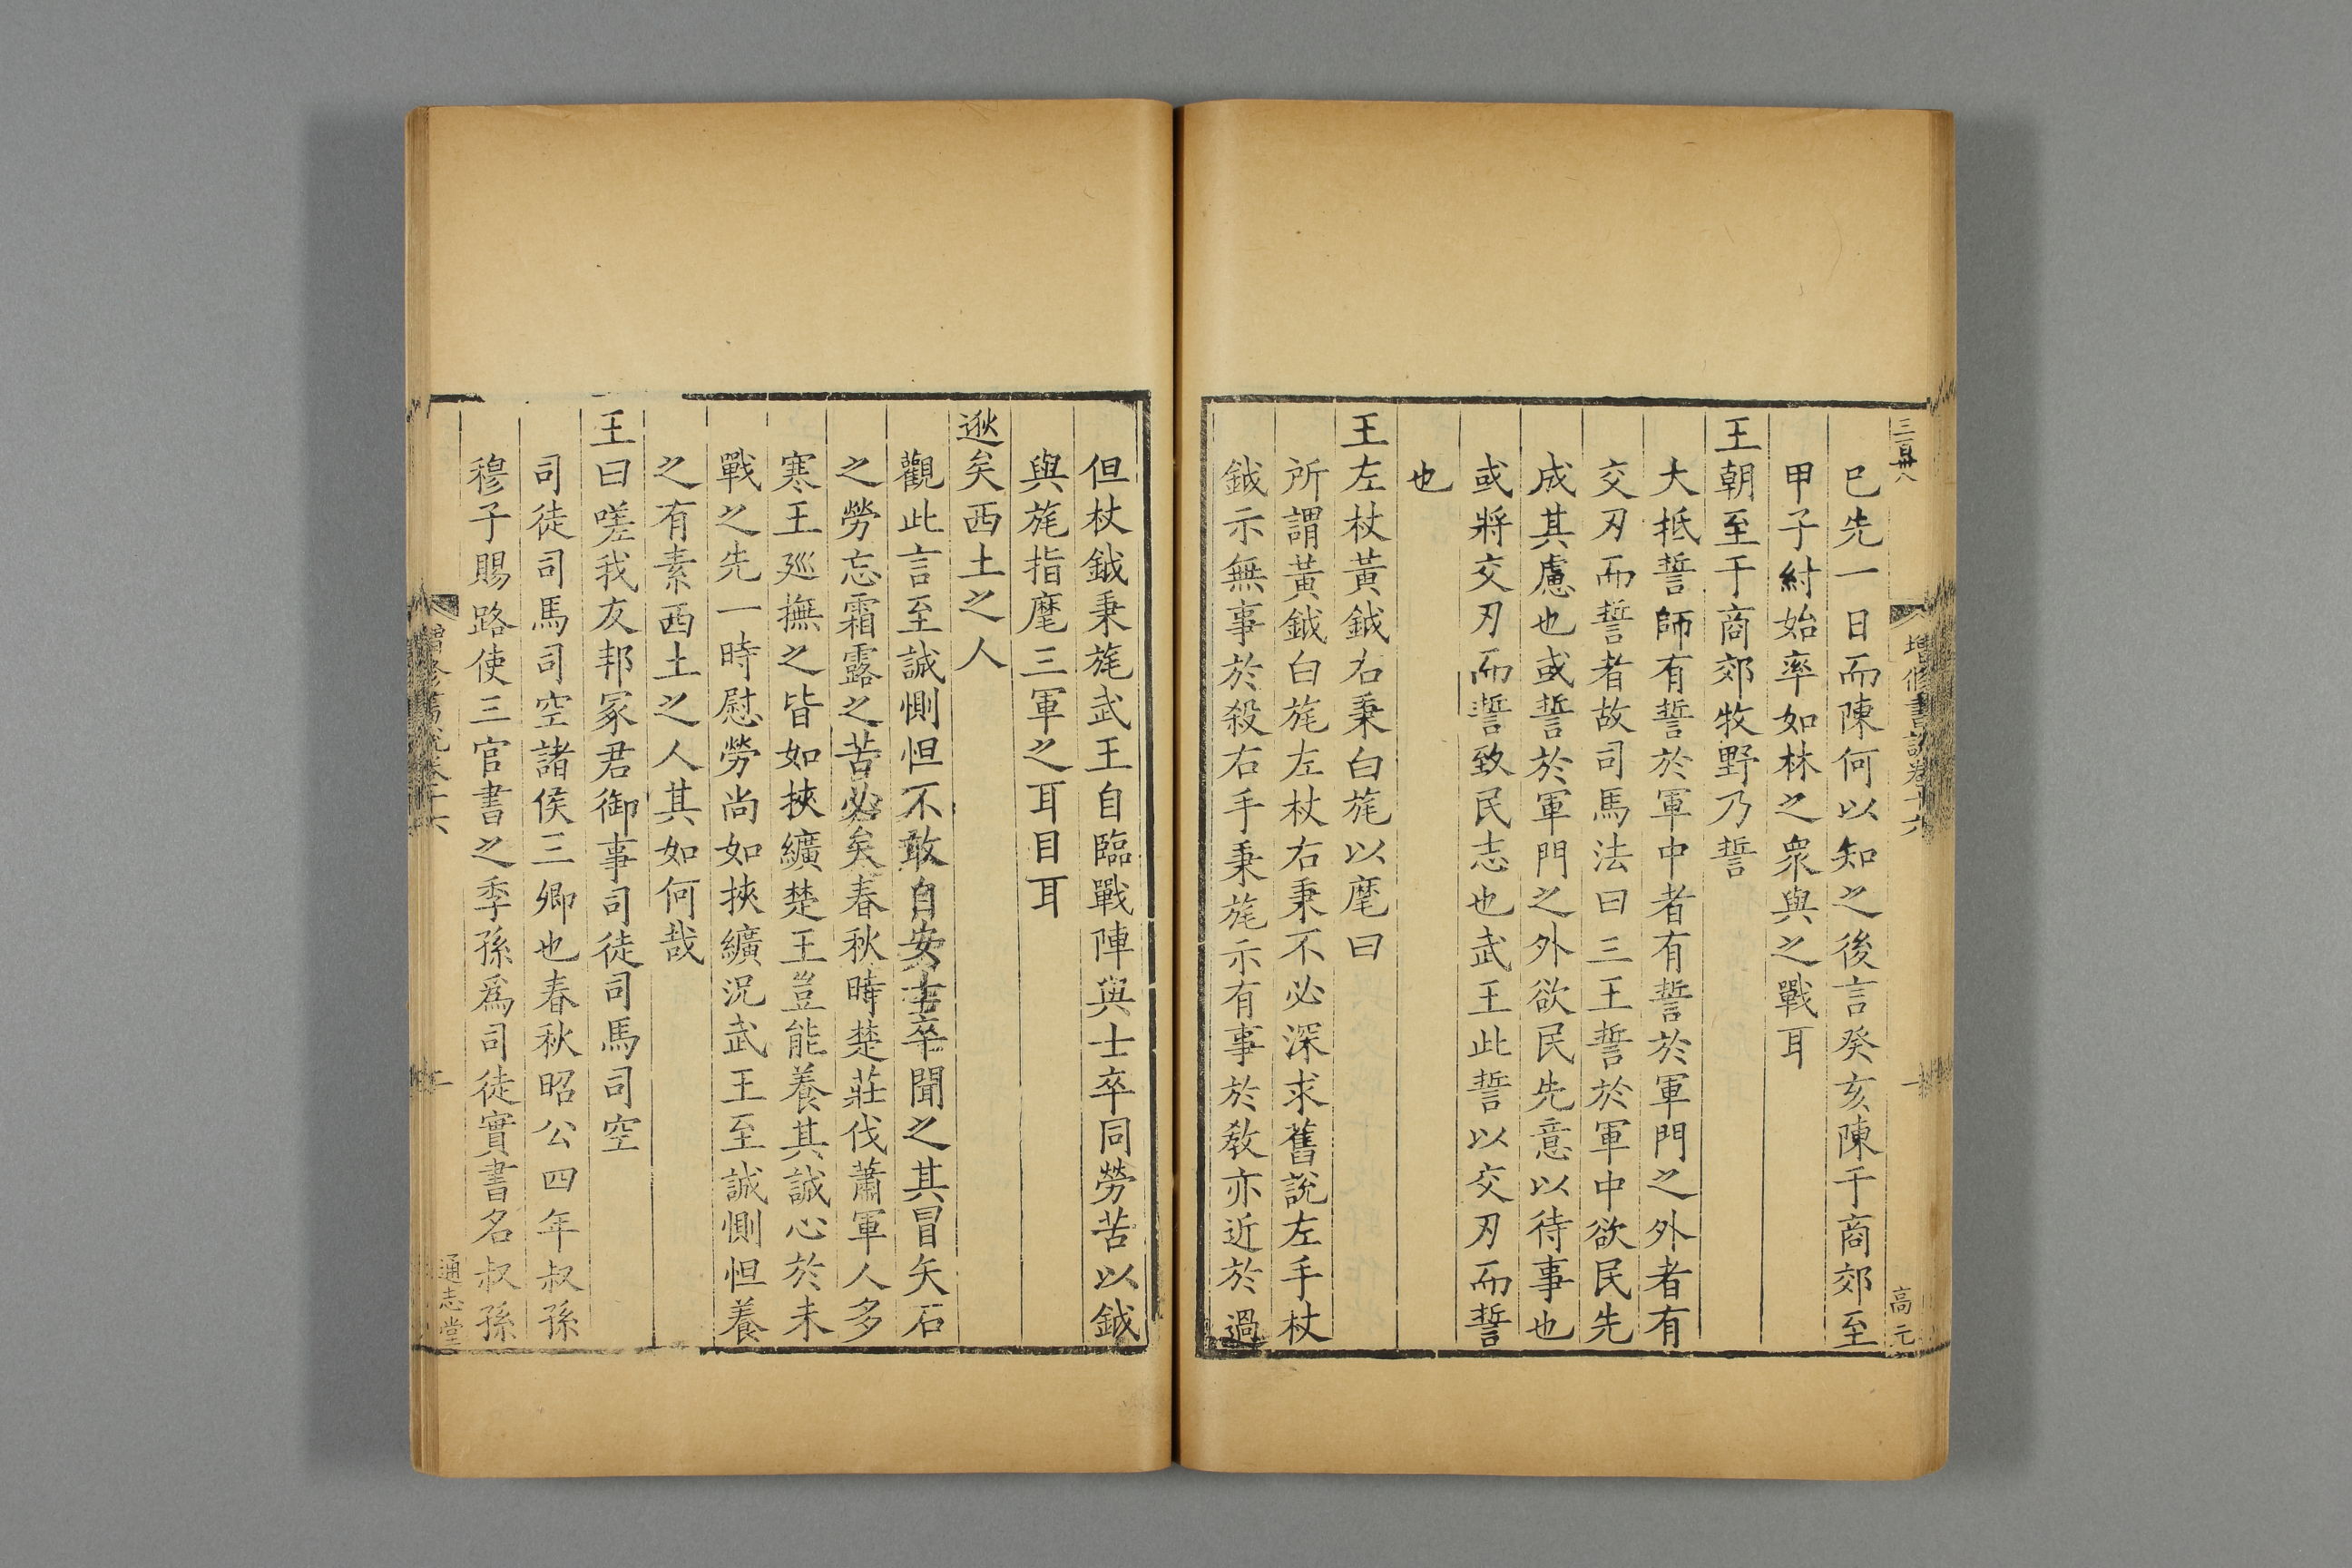 三百卌八
增修書說卷十六
一
高元
巳先一日而陳何以知之後言癸亥陳于商郊至
甲子紂始率如林之衆與之戰耳
王朝至于商郊牧野乃誓
大抵誓師有誓於軍中者有誓於軍門之外者有
交刃而誓者故司馬法曰三王誓於軍中欲民先
成其慮也或誓於軍門之外欲民先意以待事也
或將交刃而誓致民志也武王此誓以交刃而誓
也
王左杖黃鉞右秉白旄以麾曰
所謂黃鉞白旄左杖右秉不必深求舊說左手杖
鉞示無事於殺右手秉旄示有事於教亦近於過
但杖鉞秉旄武王自臨戰陣與士卒同勞苦以鉞
與旄指麾三軍之耳目耳
逖矣西土之人
觀此言至誠惻怛不敢自安士卒聞之其冒矢石
之勞忘霜露之苦必矣春秋時楚莊伐蕭軍人多
寒王廵撫之皆如挾纊楚王豈能養其誠心於未
戰之先一時慰勞尚如挾纊況武王至誠惻怛養
之有素西土之人其如何哉
王曰嗟我友邦冢君御事司徒司馬司空
司徒司馬司空諸侯三卿也春秋昭公四年叔孫
穆子賜路使三官書之季孫爲司徒實書名叔孫
增修書說卷十六
二
通志堂